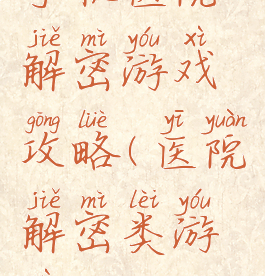 手机医院
jiě mì yóu xì
解密游戏
gōng lüè yī yuàn
攻略(医院
jiě mì lèi yóu
解密类游